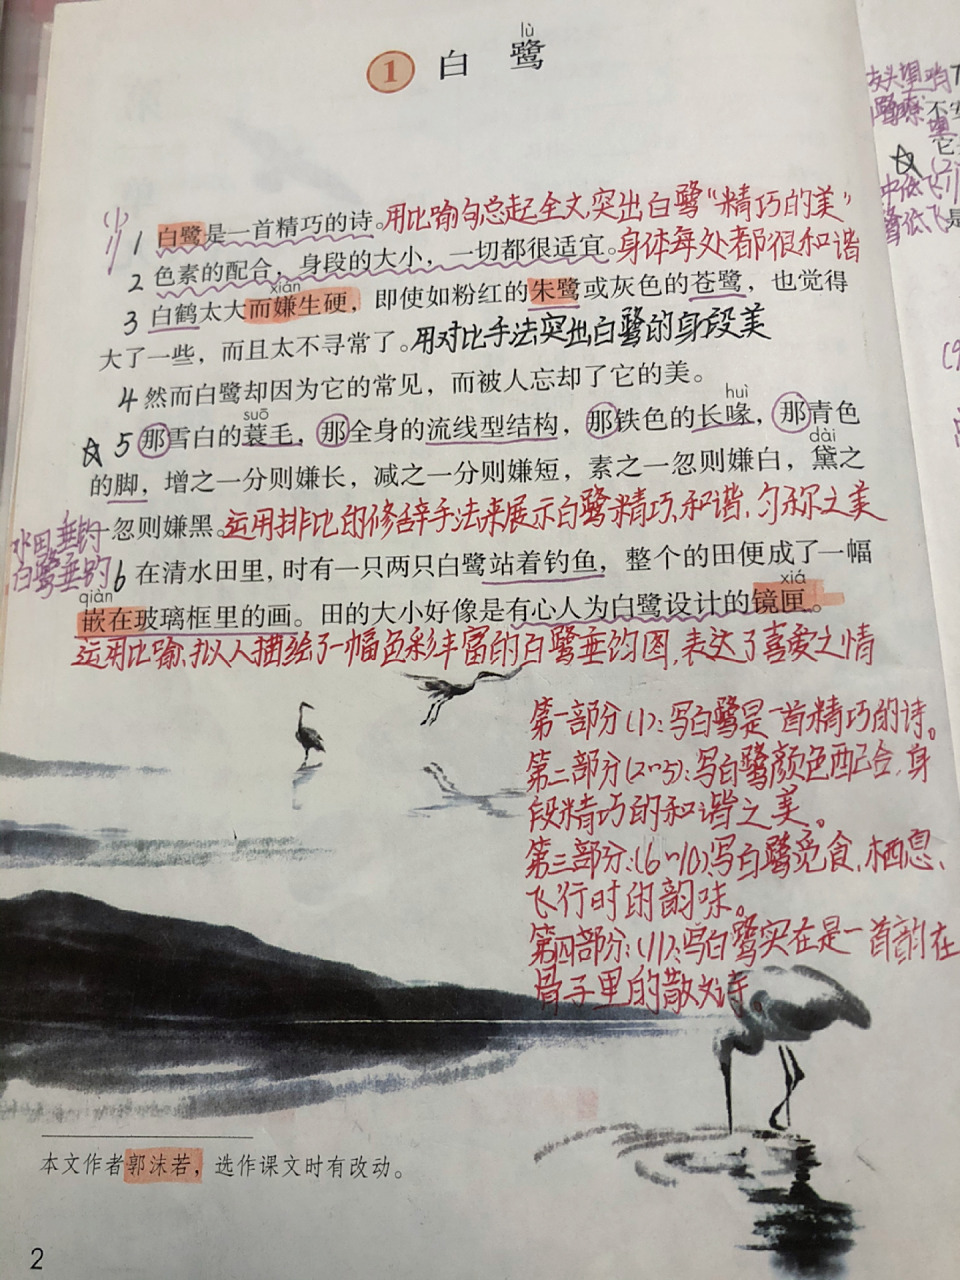 lù
1 白鹭
1 白鹭是一首精巧的诗。用比喻句总起全文,突出白鹭“精巧的美”
2 色素的配合，身段的大小，一切都很适宜。身体每处都很和谐
xián
3 白鹤太大而嫌生硬，即使如粉红的朱鹭或灰色的苍鹭，也觉得
大了一些，而且太不寻常了。用对比手法突出白鹭的身段美
4 然而白鹭却因为它的常见，而被人忘却了它的美。
suō huì
☆5 那雪白的蓑毛，那全身的流线型结构，那铁色的长喙，那青色
dài
的脚，增之一分则嫌长，减之一分则嫌短，素之一忽则嫌白，黛之
一忽则嫌黑。运用排比的修辞手法来展示白鹭精巧、和谐、匀称之美
水田垂钓
白鹭垂钓
6 在清水田里，时有一只两只白鹭站着钓鱼，整个的田便成了一幅
qiàn xiá
嵌在玻璃框里的画。田的大小好像是有心人为白鹭设计的镜匣。
运用比喻、拟人描绘了一幅色彩丰富的白鹭垂钓图,表达了喜爱之情
第一部分(1):写白鹭是一首精巧的诗。
第二部分(2~5):写白鹭颜色配合、身
段精巧的和谐之美。
第三部分:(6~10):写白鹭觅食、栖息、
飞行时的韵味。
第四部分:(11):写白鹭实在是一首韵在
骨子里的散文诗。
本文作者郭沫若，选作课文时有改动。
2